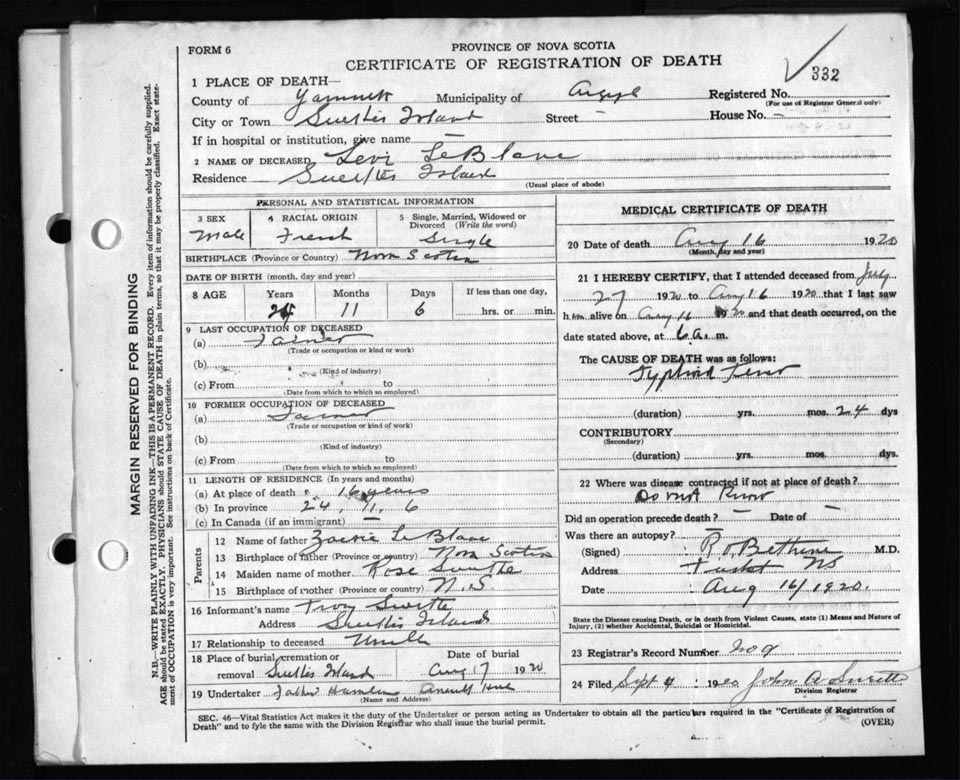 FORM 6
PROVINCE OF NOVA SCOTIA
CERTIFICATE OF REGISTRATION OF DEATH
332
1 PLACE OF DEATH—
County of Yarmouth Municipality of Argyle Registered No.
(For use of Registrar General only)
City or Town Surettes Island Street — House No. —
If in hospital or institution, give name —
2 NAME OF DECEASED Levi LeBlanc
Residence Surettes Island
(Usual place of abode)
PERSONAL AND STATISTICAL INFORMATION
3 SEX
Male
4 RACIAL ORIGIN
French
5 Single, Married, Widowed or Divorced (Write the word)
Single
BIRTHPLACE (Province or Country) Nova Scotia
DATE OF BIRTH (month, day and year)
8 AGE Years Months Days If less than one day,
24 11 6 hrs. or min.
9 LAST OCCUPATION OF DECEASED
(a) Farmer
(Trade or occupation or kind or work)
(b)
(Kind of industry)
(c) From to
(Date from which to which so employed)
10 FORMER OCCUPATION OF DECEASED
(a) Farmer
(Trade or occupation or kind of work)
(b)
(Kind of industry)
(c) From to
(Date from which to which so employed)
11 LENGTH OF RESIDENCE (In years and months)
(a) At place of death 16 years
(b) In province 24. 11. 6
(c) In Canada (if an immigrant) —
Parents
12 Name of father LeBlanc
13 Birthplace of father (Province or country) Nova Scotia
14 Maiden name of mother Rose Surette
15 Birthplace of mother (Province or country) N.S.
16 Informant's name Surette
Address Surettes Island
17 Relationship to deceased Uncle
18 Place of burial, cremation or removal Surettes Island
Date of burial
Aug 17 1920
19 Undertaker Father
(Name and Address)
MEDICAL CERTIFICATE OF DEATH
20 Date of death Aug 16 1920
(Month, day and year)
21 I HEREBY CERTIFY, that I attended deceased from July
27 1920 to Aug 16 1920 that I last saw
him alive on Aug 16 1920 and that death occurred, on the
date stated above, at 6 a. m.
The CAUSE OF DEATH was as follows:
Typhoid Fever
(duration) yrs. mos. 24 dys
CONTRIBUTORY
(Secondary)
(duration) yrs. mos. dys.
22 Where was disease contracted if not at place of death?
Do not Know
Did an operation precede death? — Date of —
Was there an autopsy? —
(Signed) Bethune M.D.
Address Tusket NS
Date Aug 16/1920.
State the Disease causing Death, or in death from Violent Causes, state (1) Means and Nature of
Injury, (2) whether Accidental, Suicidal or Homicidal.
23 Registrar's Record Number 209
24 Filed Sept 4 1920 John A Surette
Division Registrar
SEC. 46—Vital Statistics Act makes it the duty of the Undertaker or person acting as Undertaker to obtain all the particulars required in the "Certificate of Registration of
Death" and to fyle the same with the Division Registrar who shall issue the burial permit.
(OVER)
MARGIN RESERVED FOR BINDING
N.B.—WRITE PLAINLY WITH UNFADING INK—THIS IS A PERMANENT RECORD. Every item of information should be carefully supplied.
AGE should be stated EXACTLY. PHYSICIANS should STATE CAUSE OF DEATH in plain terms, so that it may be properly classified. Exact state-
ment of OCCUPATION is very important. See instructions on back of Certificate.